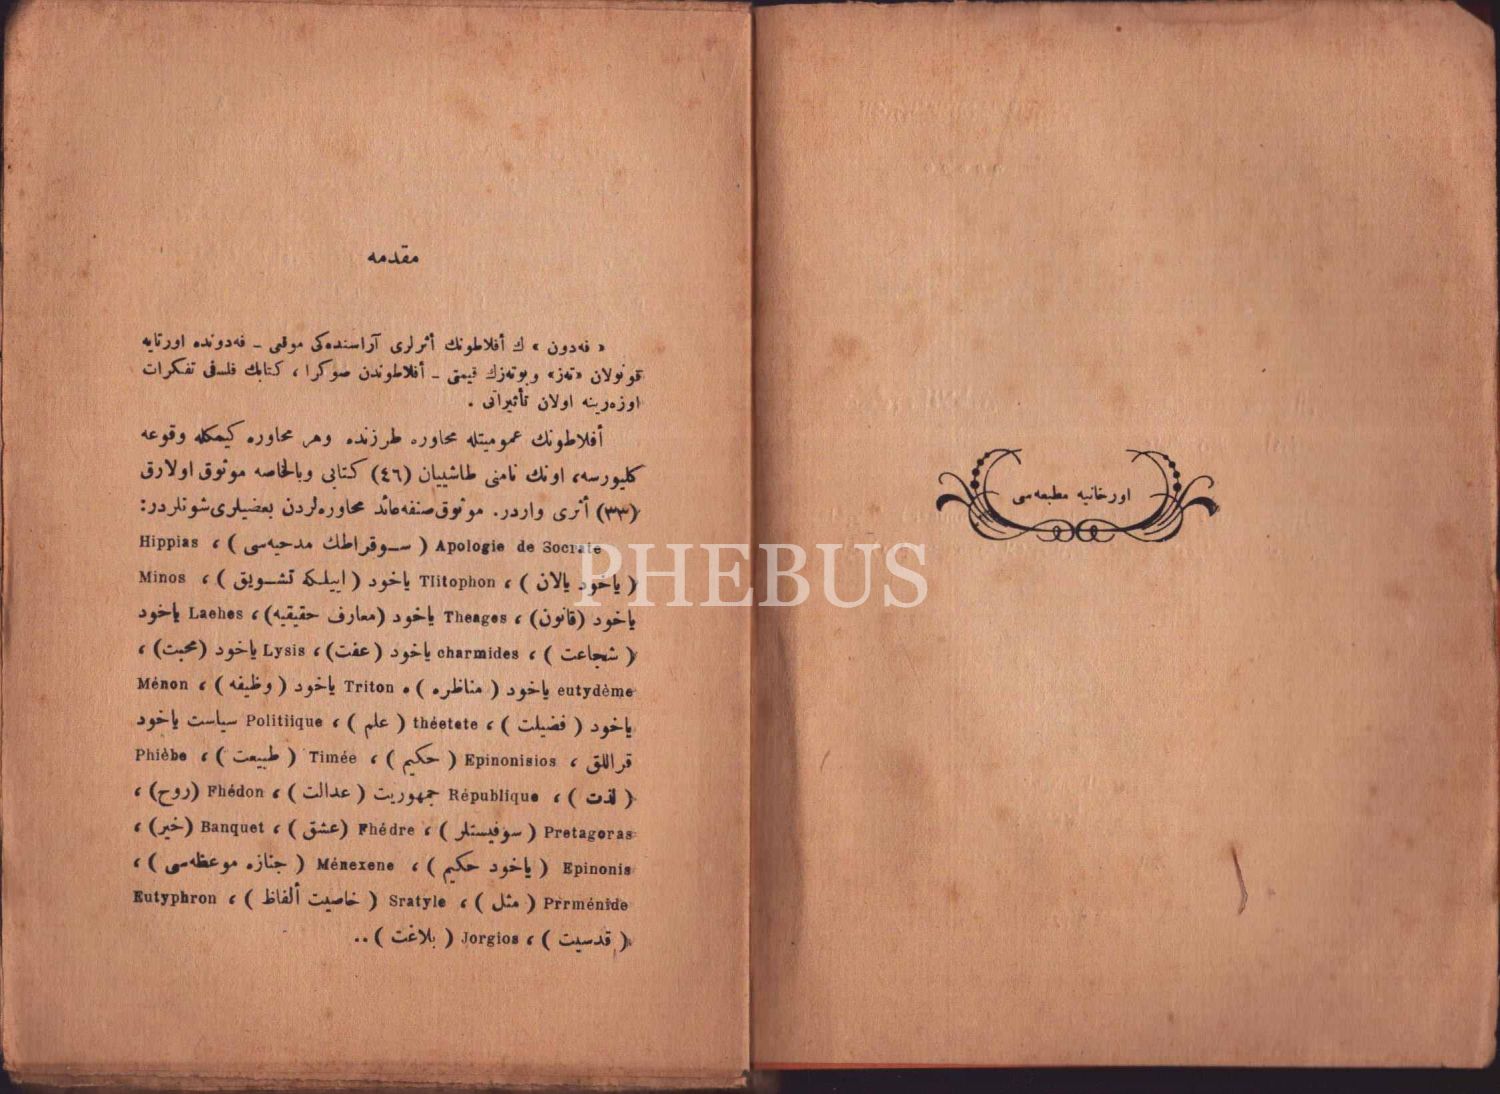 اورخانیه مطبعه‌سی
مقدمه
« فه‌دون » ك أفلاطونك أثرلری آراسنده‌کی موقعی ـ فه‌دونده اورتایه
قونولان «ته‌ز» وبوته‌زك قیمتی ـ أفلاطوندن صوکرا ، کتابك فلسفی تفکرات
اوزه‌رینه اولان تأثیراتی .
أفلاطونك عمومیتله محاوره طرزنده وهر محاوره کیمکله وقوعه
کلیورسه، اونك نامنی طاشییان (٤٦) کتابی وبالخاصه موثوق اولارق
(٣٣) أثری واردر. موثوق صنفه عائد محاوره‌لردن بعضیلری شونلردر:
Apologie de Socrate ( سـوقراطك مدحیه‌سی ) ، Hippias
( یاخود یالان ) ، Tlitophon یاخود ( اییلکه تشـویق ) ، Minos
یاخود (قانون) ، Theages یاخود (معارف حقیقیه) ، Laehes یاخود
( شجاعت ) ، charmides یاخود ( عفت) ، Lysis یاخود (محبت) ،
eutydème یاخود ( مناظره ) . Triton یاخود ( وظیفه ) ، Ménon
یاخود ( فضیلت ) ، théetete ( علم ) ، Politiique سیاست یاخود
قراللق ، Epinonisios ( حکیم ) ، Timée ( طبیعت ) ، Phièbe
( لذت ) ، République جمهوریت ( عدالت ) ، Fhédon (روح) ،
Pretagoras ( سوفیستلر ) ، Fhédre (عشق ) ، Banquet (خیر) ،
Epinonis ( یاخود حکیم ) ، Ménexene ( جنازه موعظه‌سی ) ،
Prrménide ( مثل ) ، Sratyle ( خاصیت ألفاظ ) ، Eutyphron
( قدسیت ) ، Jorgios ( بلاغت ) ..
PHEBUS